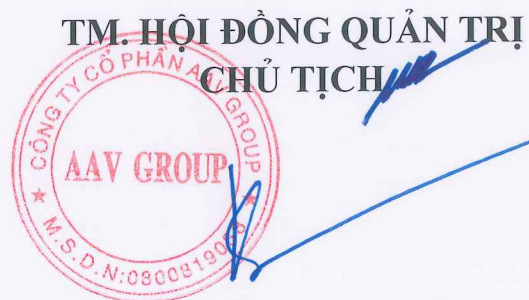 TM. HỘI ĐỒNG QUẢN TRỊ
CHỦ TỊCH
CÔNG TY CỔ PHẦN AAV GROUP
AAV GROUP
M.S.D.N: